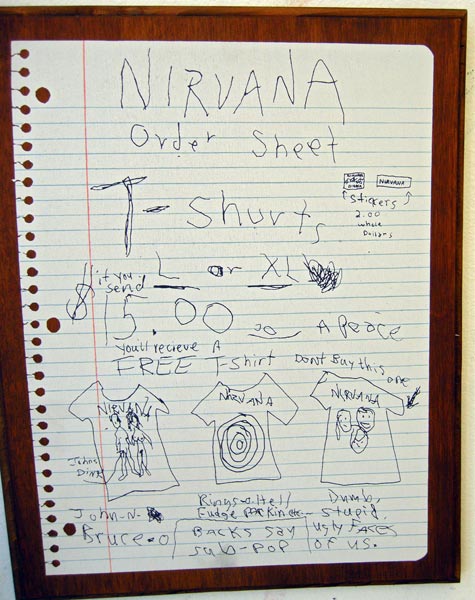 NIRVANA
Order Sheet
NIRVANA
T-Shurts
stickers
2.00
whole
Dollars
L or XL
if you
send
$15.00
A Peice
you'll recieve A
FREE T-Shirt
Dont Buy this
one
NIRVANA
NIRVANA
NIRVANA
Johns
Dink
John-N-
Bruce-o
Rings-o-Hell/
Fudge PacKin etc
Backs say
sub-pop
Dumb,
stupid
ugly FAces
of us.